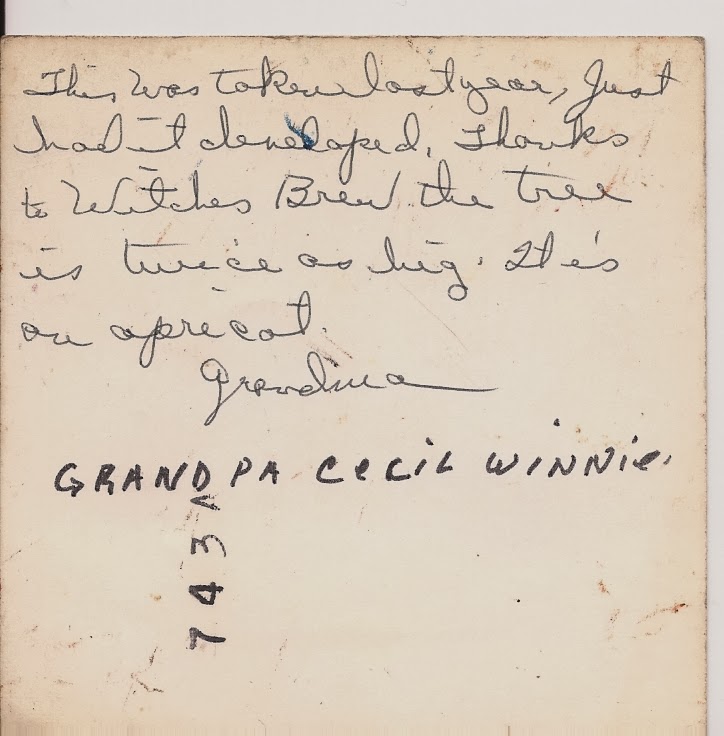 This was taken last year, Just
had it developed. Thanks
to Witches Brew the tree
is twice as big. It's
an apricot.
Grandma
GRANDPA CECIL WINNIE.
743